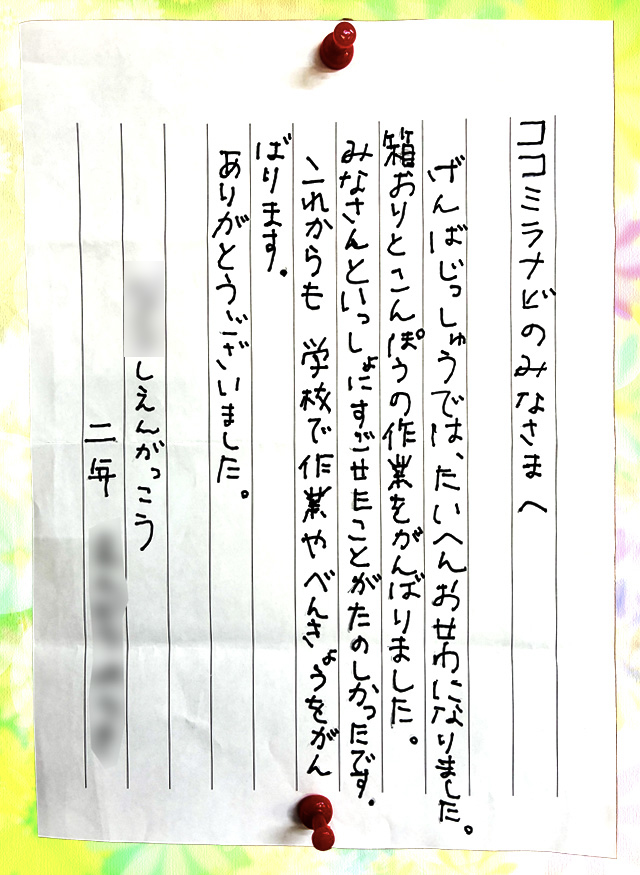 ココミラナビのみなさまへ
げんばじっしゅうでは、たいへんおせわになりました。
箱おりとこんぽうの作業をがんばりました。
みなさんといっしょにすごせたことがたのしかったです。
これからも 学校で作業やべんきょうをがん
ばります。
ありがとうございました。
しえんがっこう
二年